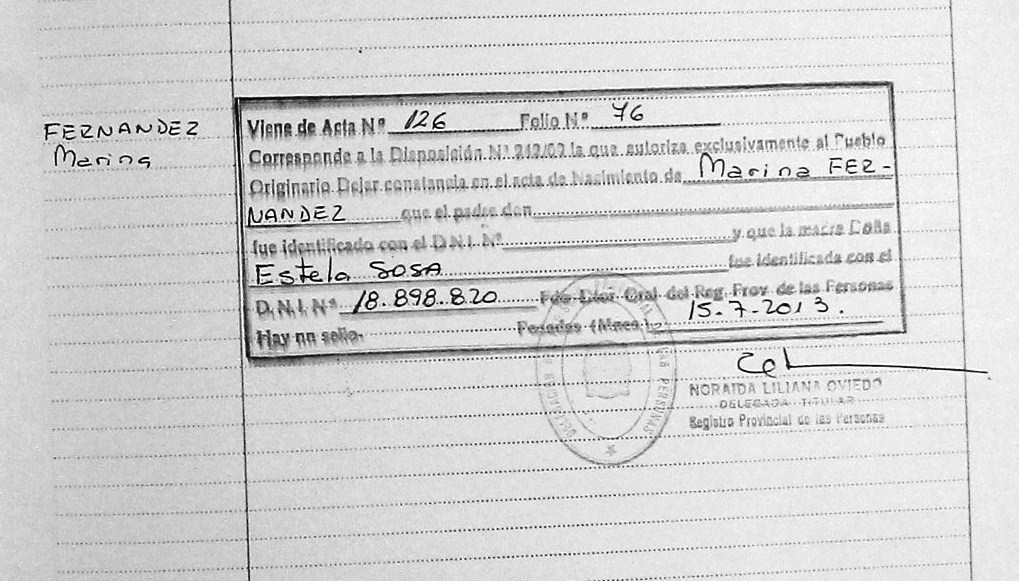 FERNANDEZ
Marina
Viene de Acta Nº 126 Folio Nº 76
Corresponde a la Disposición Nº 242/09 la que autoriza exclusivamente al Pueblo
Originario Dejar constancia en el acta de Nasimiento de Marina FER-
NANDEZ que el padre don
fue identificado con el D.N.I. Nº y que la madre Doña
Estela SOSA fue identificada con el
D.N.I. Nº 18.898.820 Fdo Dtor. Gral. del Reg. Prov. de las Personas
Hay un sello. Posadas (Mnes.) 15-7-2013.
NORAIDA LILIANA OVIEDO
DELEGADA TITULAR
Registro Provincial de las Personas